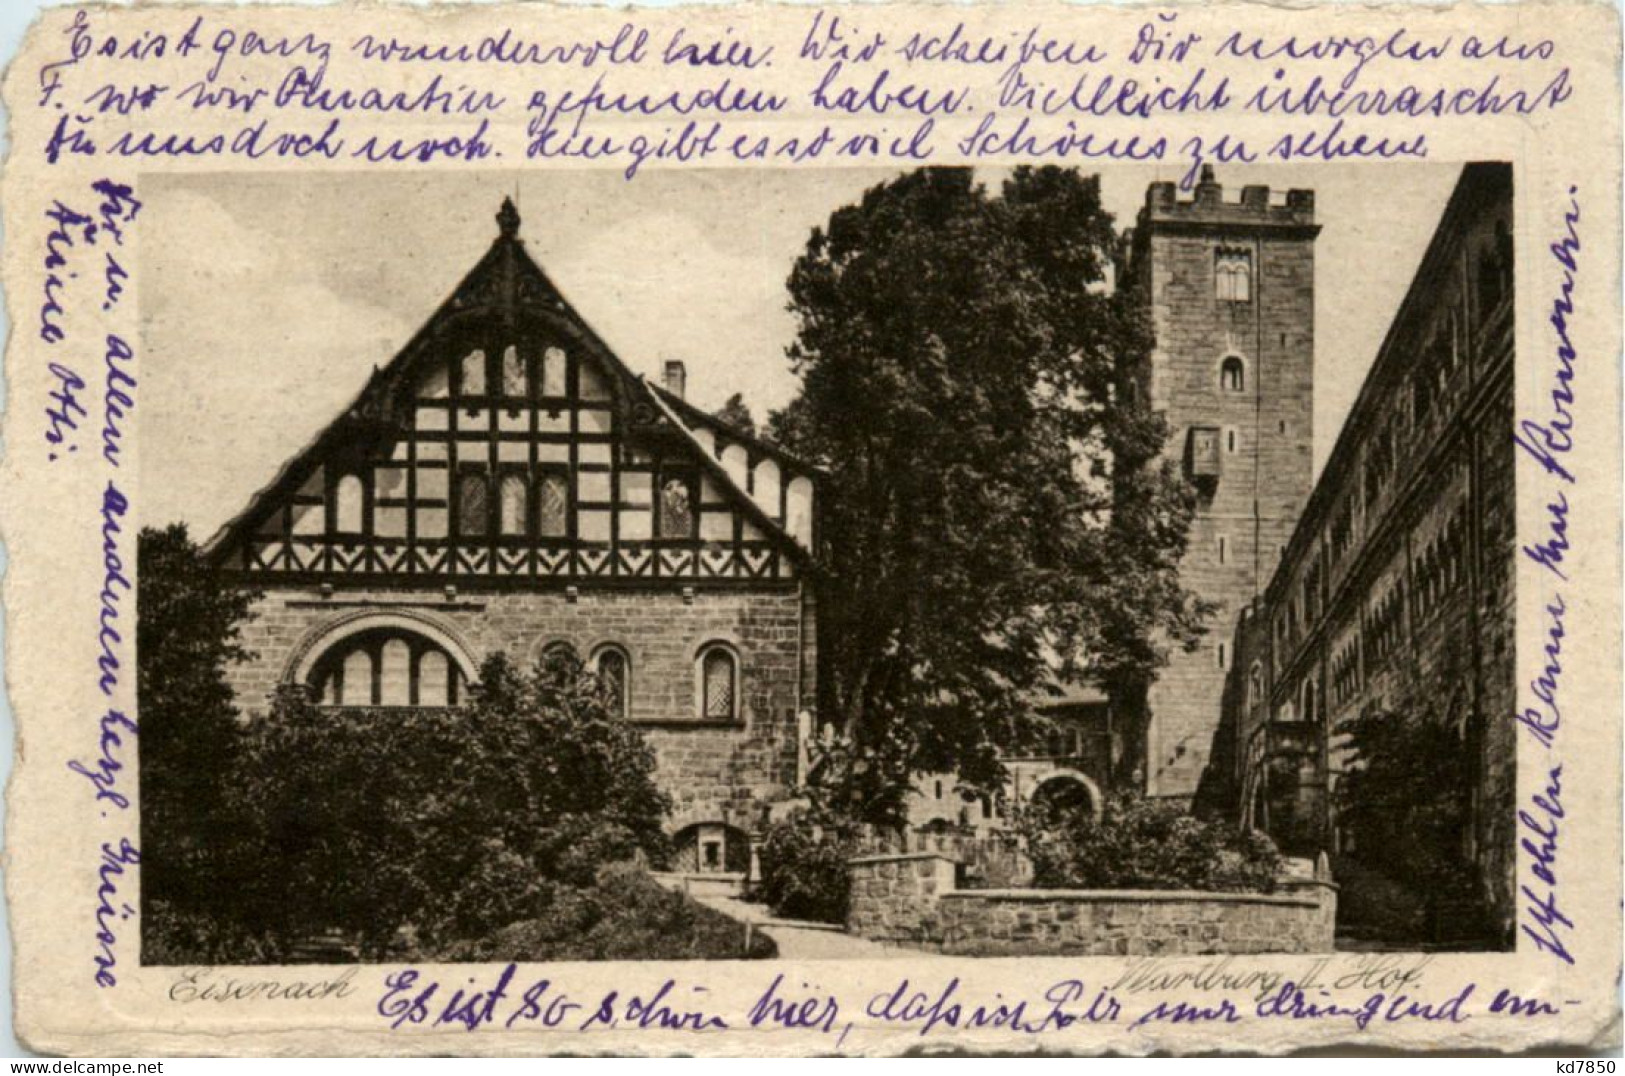 Es ist ganz wundervoll hier. Wir schreiben Dir morgen aus
F. wo wir Quartier gefunden haben. Vielleicht überraschst
Du uns doch noch. Hier gibt es so viel Schönes zu sehen.
Dir u. allen anderen herzl. Grüsse
Deine Otti.
Eisenach
Wartburg II. Hof.
Es ist so schön hier, dass ich Dir nur dringend em-
pfehlen kann zu kommen.
kd7850